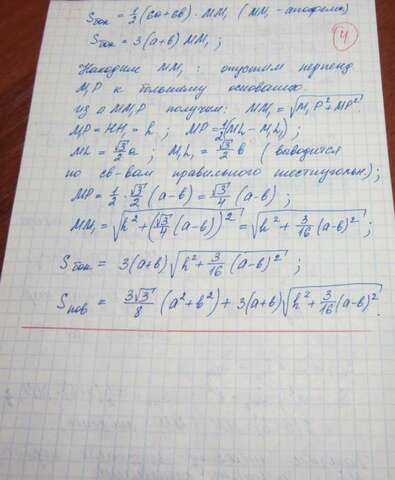 Sбок = 1/2 (6a+6в) · MM₁ (MM₁ - апофема)
Sбок = 3(a+в) MM₁ ;
4
Находим MM₁ : опустим перпенд.
M₁P к большему основанию.
из △ MM₁P получим: MM₁ = √(M₁P²+MP²)
M₁P = HH₁ = h ; MP = 1/2 (ML - M₁L₁) ;
ML = √3/2 a ; M₁L₁ = √3/2 в (
по св-вам правильного шестиугольн.) ;
MP = 1/2 · √3/2 (a-в) = √3/4 (a-в) ;
MM₁ = √(h² + (√3/4 (a-в))²) = √(h² + 3/16 (a-в)²) ;
Sбок = 3(a+в) √(h² + 3/16 (a-в)²) ;
Sпов = 3√3/8 (a²+в²) + 3(a+в) √(h² + 3/16 (a-в)²) .